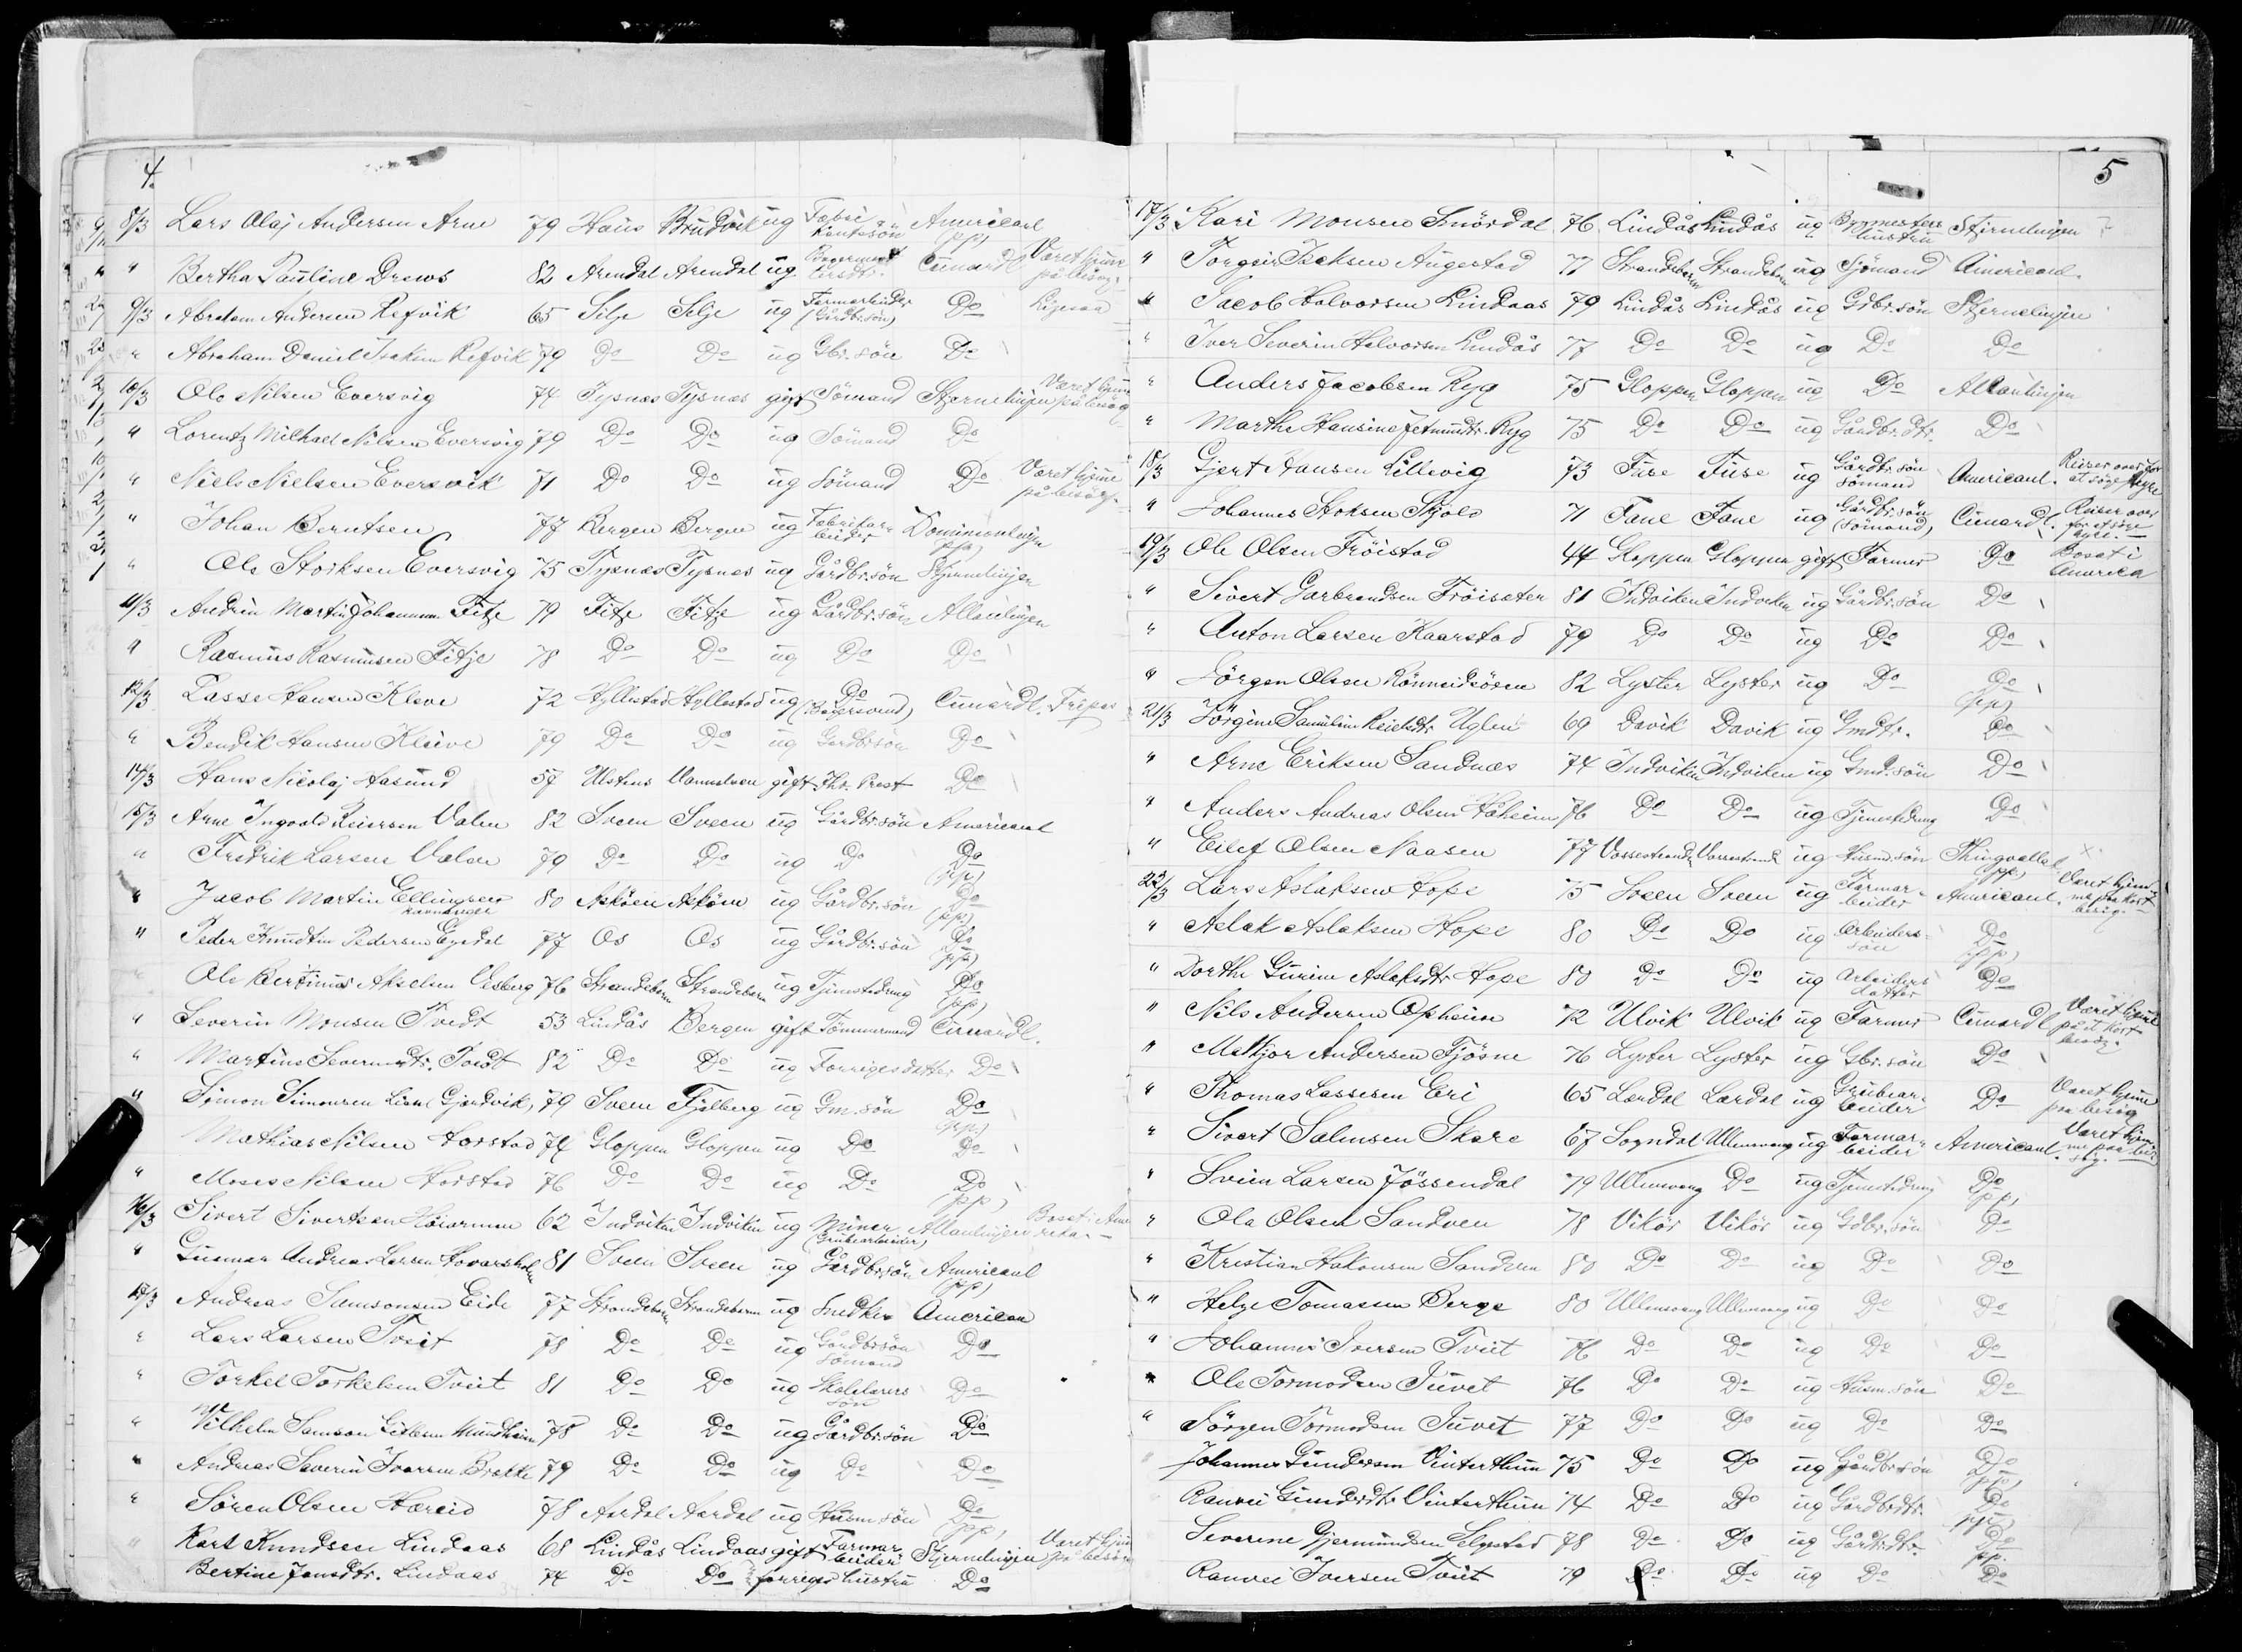 4.
8/3 Lars Olaj Andersen Arne 79 Haus Bruvik ug Fabrikantsøn Americanl (pp)
" Bertha Pauline Drews 82 Arendal Arendal ug Cunardl Været hjemme på besøg.
9/3 Abraham Andersen Refvik 65 Selje Selje ug Farmarbeider (Gårdbr.søn) Do Ligesaa
" Abraham Daniel Isaksen Refvik 79 Do Do ug Gbr.søn Do
10/3 Ole Nilsen Eversvig 74 Tysnæs Tysnæs gift Sømand Stjernelinjen Været hjemme på besøg
" Lorentz Michael Nilsen Eversvig 79 Do Do ug Sømand Do
" Niels Nielsen Eversvik 71 Do Do ug Sømand Do Været hjemme på besøg.
" Johan Berntsen 77 Bergen Bergen ug Fabrikarbeider Dominionlinjen (pp)
" Ole Storksen Eversvig 75 Tysnæs Tysnæs ug Gårdbr.søn Stjernelinjen
11/3 Andrin Martin Johannesen Fitje 79 Fitje Fitje ug Gårdbr.søn Allanlinjen
" Rasmus Rasmusen Fitje 78 Do Do ug Do Do
12/3 Lasse Hansen Kleve 72 Hyllestad Hyllestad ug Do Cunardl. Fripas
" Bendik Hansen Kleive 79 Do Do ug Gårdbrsøn Do
14/3 Hans Nicolaj Hasund 57 Ulstens Vannelven gift Prest Do
15/3 Arne Ingvald Reiersen Valen 82 Sveen Sveen ug Gårdbr.søn Americanl
" Fredrik Larsen Valen 79 Do Do ug Do Do (pp)
" Jacob Martin Ellingsen Ravnanger 80 Askøen Askøen ug Gårdbr.søn Do (pp)
" Peder Knudtin Pedersen Eysdal 77 Os Os ug Gårdbr.søn Do (pp)
" Ole Bertinus Akselsen Oksberg 76 Strandebarm Strandebarm ug Tjenestedreng Do (pp)
" Severin Monsen Tvedt 53 Lindås Bergen gift Tømmermand Cunardl.
" Martine Severinsdtr. Tvedt 82 Do Do ug Forriges datter Do
" Simon Simonsen Gjerdvik, 79 Sveen Fjelberg ug Gm.søn Do (pp)
Mathias Nilsen Horstad 74 Gloppen Gloppen ug Do Do
" Moses Nilsen Horstad 76 Do Do ug Do Do (pp)
16/3 Sivert Sivertsen 62 Indviken Indviken ug Miner (Grubearbeider) Allanlinjen Bosat i Amerika
" Gunnar Andreas Larsen Hovarsholm 81 Sveen Sveen ug Gårdbrsøn Americanl (pp)
17/3 Andreas Samsonsen Eide 77 Strandebarm Strandebarm ug Snedker American
" Lars Larsen Tveit 78 Do Do ug Gårdbrsøn Sømand Do
" Torkel Torkelsen Tveit 81 Do Do ug Skolelærers søn Do
" Vilhelm Samson Gitlesen Mundheim 78 Do Do ug Gårdbr.søn Do
" Andreas Severin Iversen Brekke 79 Do Do ug Do Do
" Søren Olsen Hæreid 78 Aardal Aardal ug Husm.søn Do (pp)
" Karl Knudsen Lindaas 68 Lindås Lindaas gift Farmarbeider Stjernelinjen Været hjem på besøg
Bertine Jensdtr. Lindaas 74 Do Do forriges hustru Do
5
17/3 Kari Monsen Snördal 76 Lindås Lindås ug Bygmesters hustru Stjernelinjen ?
" Torgeir Isaksen Augestad 77 Strandebarm Strandebarm ug Sjømand Americanl.
" Jacob Halvorsen Lindaas 79 Lindås Lindås ug Gdbr.søn Stjernelinjen
" Iver Severin Halvorsen Lindås 77 Do Do ug Do Do
" Anders Jacobsen Ryg 75 Gloppen Gloppen ug Do Allanlinjen
" Marthe Hansine Jetmundtr. Ryg 75 Do Do ug Gårdbr.dtr. Do
18/3 Gjert Hansen Lillevig 73 Fuse Fuse ug Gårdbr.søn Sømand Americanl. Reiser over for at søge Hyre
" Johannes Stoksen Skjold 71 Fane Fane ug Gårdbr.søn (Sømand) Cunardl. Reiser over for at søge Hyre.
19/3 Ole Olsen Fröistad 44 Gloppen Gloppen gift Farmer Do Bosat i America
" Sivert Garbrandsen Fröisæter 81 Indviken Indviken ug Gårdbr.søn Do
" Anton Larsen Kaarstad 79 Do Do ug Do Do
" Jørgen Olsen Rönneidsören 82 Lyster Lyster ug Do Do (pp)
21/3 Jørgine Samuline Reielsdtr Uglen 69 Davik Davik ug Gmdtr. Do
" Arne Eriksen Sandnæs 74 Indviken Indviken ug Gmd.søn Do
" Anders Andreas Olsen Håheim 76 Do Do ug Tjenestedreng Do
" Eilef Olsen Naasen 77 Vossestranden Vossestrand ug Husmd.søn Thingvallal (pp) x
22/3 Lars Aslaksen Hope 75 Sveen Sveen ug Farmarbeider Americanl. Været hjemme paa kort besøg.
" Aslak Aslaksen Hope 80 Do Do ug Arbeiders søn Do (pp)
" Dorthe Gurine Aslaksdtr Hope 80 Do Do ug Arbeiders datter Do
" Nils Andersen Opheim 72 Ulvik Ulvik ug Farmer Cunardl Været hjemme på et kort besøg.
" Melkjor Andersen Fjøsne 76 Lyster Lyster ug Gbr.søn Do
" Thomas Lassesen Eri 65 Lærdal Lærdal ug Grubearbeider Do Været hjemme paa besøg
" Sivert Salmsen Skare 67 Sogndal Ullensvang ug Farmarbeider Americanl. Været hjemme paa besøg.
" Svein Larsen Jössendal 79 Ullensvang Do ug Tjenestedreng Do (pp)
" Ola Olsen Sandven 78 Vikör Vikör ug Gdbr.søn Do
" Kristian Hakonsen Sandven 80 Do Do ug Do Do
" Helge Tomassen Berge 80 Ullensvang Ullensvang ug Do Do
" Johannes Iversen Tveit 76 Do Do ug Do Do
" Ole Tormodsen Juvet 76 Do Do ug Husm.søn Do
" Jørgen Tormodsen Juvet 77 Do Do ug Do Do
Johannes Gundersen Vinterthun 75 Do Do ug Gårdbr.søn Do (pp)
Ranvei Gundersdtr Vinterthun 74 Do Do ug Gårdbrdtr. Do (pp)
Severine Gjermundsen Selgestad 78 Do Do ug Gårdbr.dtr. Do pp.
Ranvei Iversen Tveit 79 Do Do ug Do Do